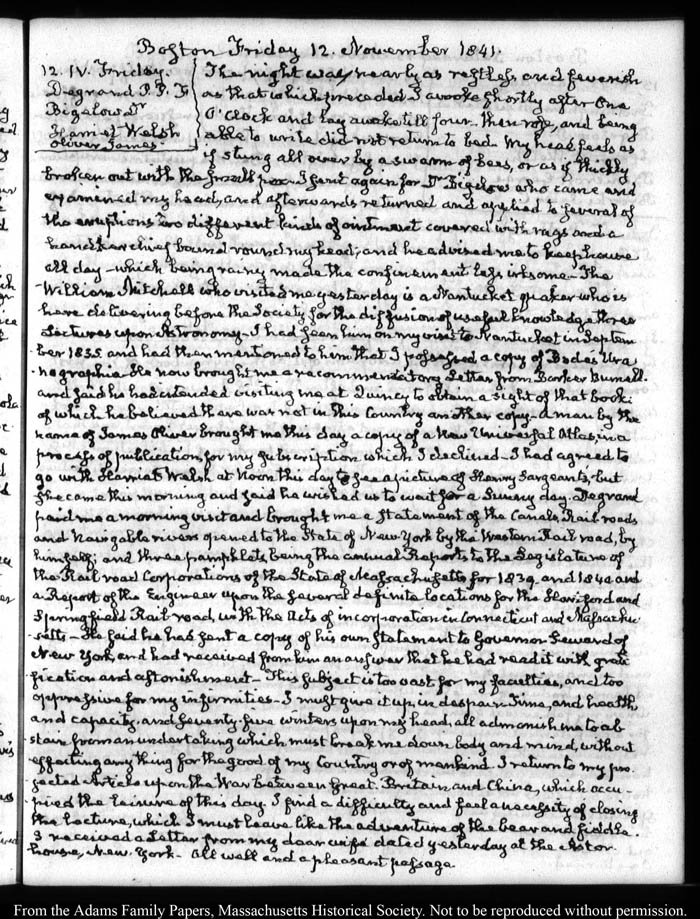 Boston Friday 12. November 1841.
12. IV. Friday.
Degrand P. P. F
Bigelow Dr
Harriet Welsh
Oliver James.
The night was nearly as restless and feverish
as that which preceded I awoke shortly after one
O'Clock and lay awake till four. then rose, and being
able to write did not return to bed. My head feels as
if stung all over by a swarm of bees, or as if thickly
broken out with the small pox. I sent again for Dr Bigelow who came and
examined my head, and afterwards returned and applied to several of
the eruptions two different kinds of ointment covered with rags and a
handkerchief bound round my head; and he advised me to keep house
all day—which being rainy made the confinement less irksome—The
William Mitchell who visited me yesterday is a Nantucket quaker who is
here delivering before the Society for the diffusion of useful knowledge three
Lectures upon Astronomy—I had seen him on my visit to Nantucket in Septem
ber 1835. and had then mentioned to him that I possessed a copy of Bodes Ura
nographia. He now brought me a recommendatory Letter from Barker Burnell.
and said he had intended visiting me at Quincy to obtain a sight of that book:
of which he believed there was not in this Country another copy. A man by the
name of James Oliver brought me this day a copy of a New Universal Atlas, in a
process of publication, for my subscription which I declined—I had agreed to
go with Harriet Welsh at Noon this day to see a picture of Henry Sargeants, but
she came this morning and said he wished us to wait for a Sunny day. Degrand
paid me a morning visit and brought me a Statement of the Canals, Rail roads
and Navigable rivers opened to the State of New York by the Western Rail road, by
himself; and three pamphlets being the annual Reports to the Legislature of
the Rail road Corporations of the State of Massachusetts for 1839. and 1840 and
a Report of the Engineer upon the several definite locations for the Hartford and
Springfield Rail road, with the Acts of incorporation in Connecticut and Massachu
setts—He said he has sent a copy of his own Statement to Governor Seward of
New York, and had received from him an answer that he had read it with grati
fication and astonishment—This subject is too vast for my faculties, and too
oppressive for my infirmities—I must give it up, in despair. Time, and health,
and capacity, and seventy-five winters upon my head, all admonish me to ab
stain from an undertaking which must break me down body and mind, without
effecting any thing for the good of my Country or of mankind. I return to my pro
jected Article upon the War between Great Britain and China, which occu
pied the leisure of this day. I find a difficulty and feel a necessity of closing
the lecture, which I must leave like the adventure of the bear and fiddle.
I received a Letter from my dear wife dated yesterday at the Astor
house, New York—All well and a pleasant passage
From the Adams Family Papers, Massachusetts Historical Society. Not to be reproduced without permission.